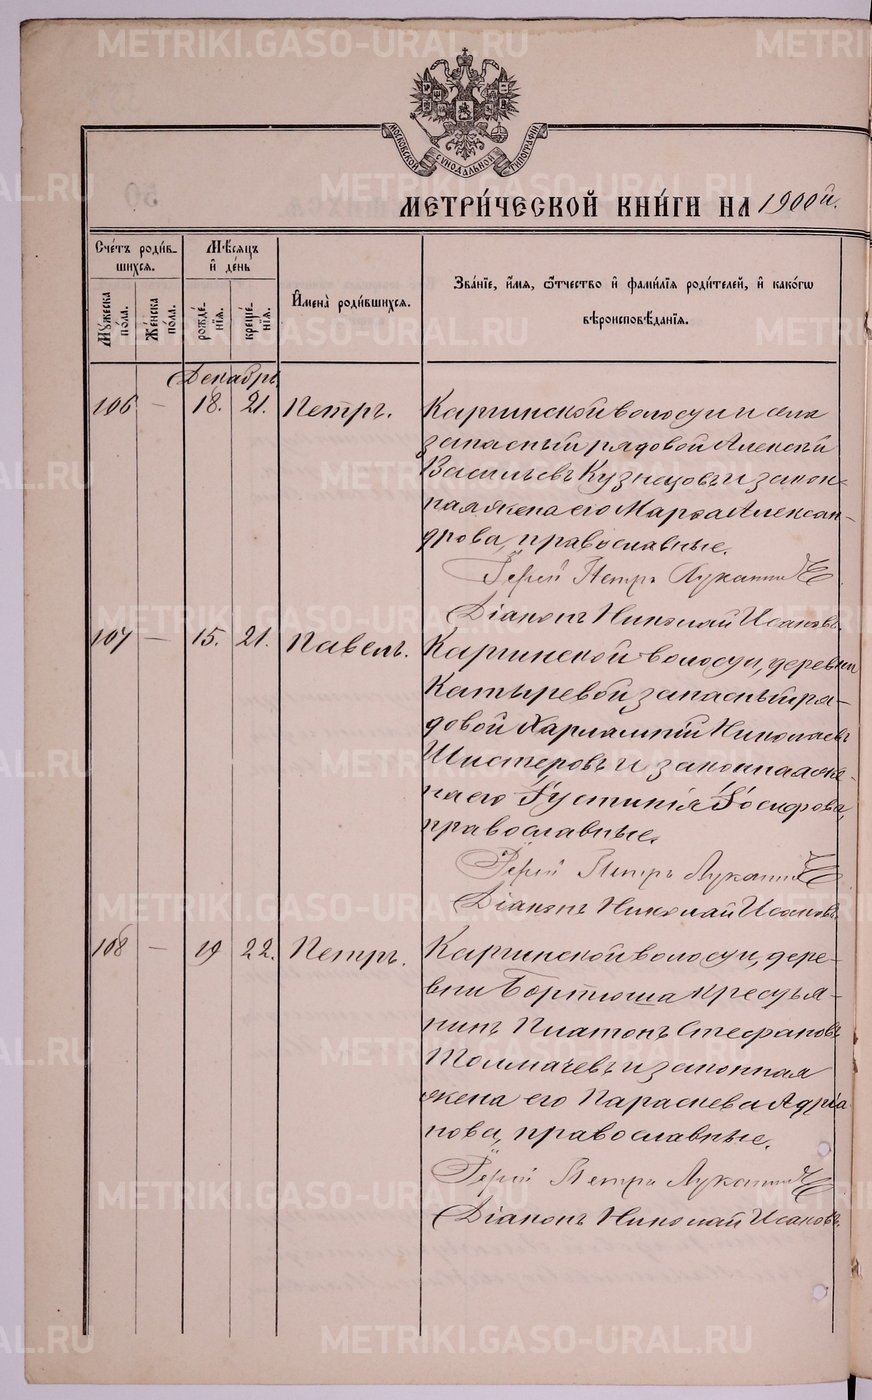 METRIKI.GASO-URAL.RU
МОСКОВСКОЙ СѴНОДАЛЬНОЙ ТИПОГРАФІИ
МЕТРИ́ЧЕСКОЙ КНИ́ГИ НА 1900й.
Счéтъ роди́в-
шихся.
Мѣ́сяцъ
и҆ де́нь
Мꙋ́жеска по́ла.
Же́нска по́ла.
рожде́-нїѧ.
креще́-нїѧ.
И҆мена̀ роди́вшихся.
Зва́нїе, и҆́мѧ, ѻ҆́тчество и҆ фами́лїѧ роди́телей, и҆ како́гѡ
вѣроисповѣ́данїѧ.
Декабрь
106 — 18. 21. Петръ. Каргинской волости и села
запасный рядовой Алексѣй
Васильевъ Кузнецовъ и закон-
ная жена его Марѳа Алексан-
дрова, православные.
Іерей Петръ Лукании
Діаконъ Николай Исаковъ.
107 — 15. 21. Павелъ. Каргинской волости, деревни
Катыревой запасный ря-
довой Харлампій Николаевъ
Шистеровъ и законная же-
на его Іустинія Іосифова,
православные.
Іерей Петръ Лукании
Діаконъ Николай Исаковъ
108 — 19 22. Петръ. Каргинской волости, дере-
вни Бортюша крестья-
нинъ Платонъ Стефановъ
Толмачевъ и законная
жена его Параскева Адріа
нова, православные.
Іерей Петръ Лукании
Діаконъ Николай Исаковъ.